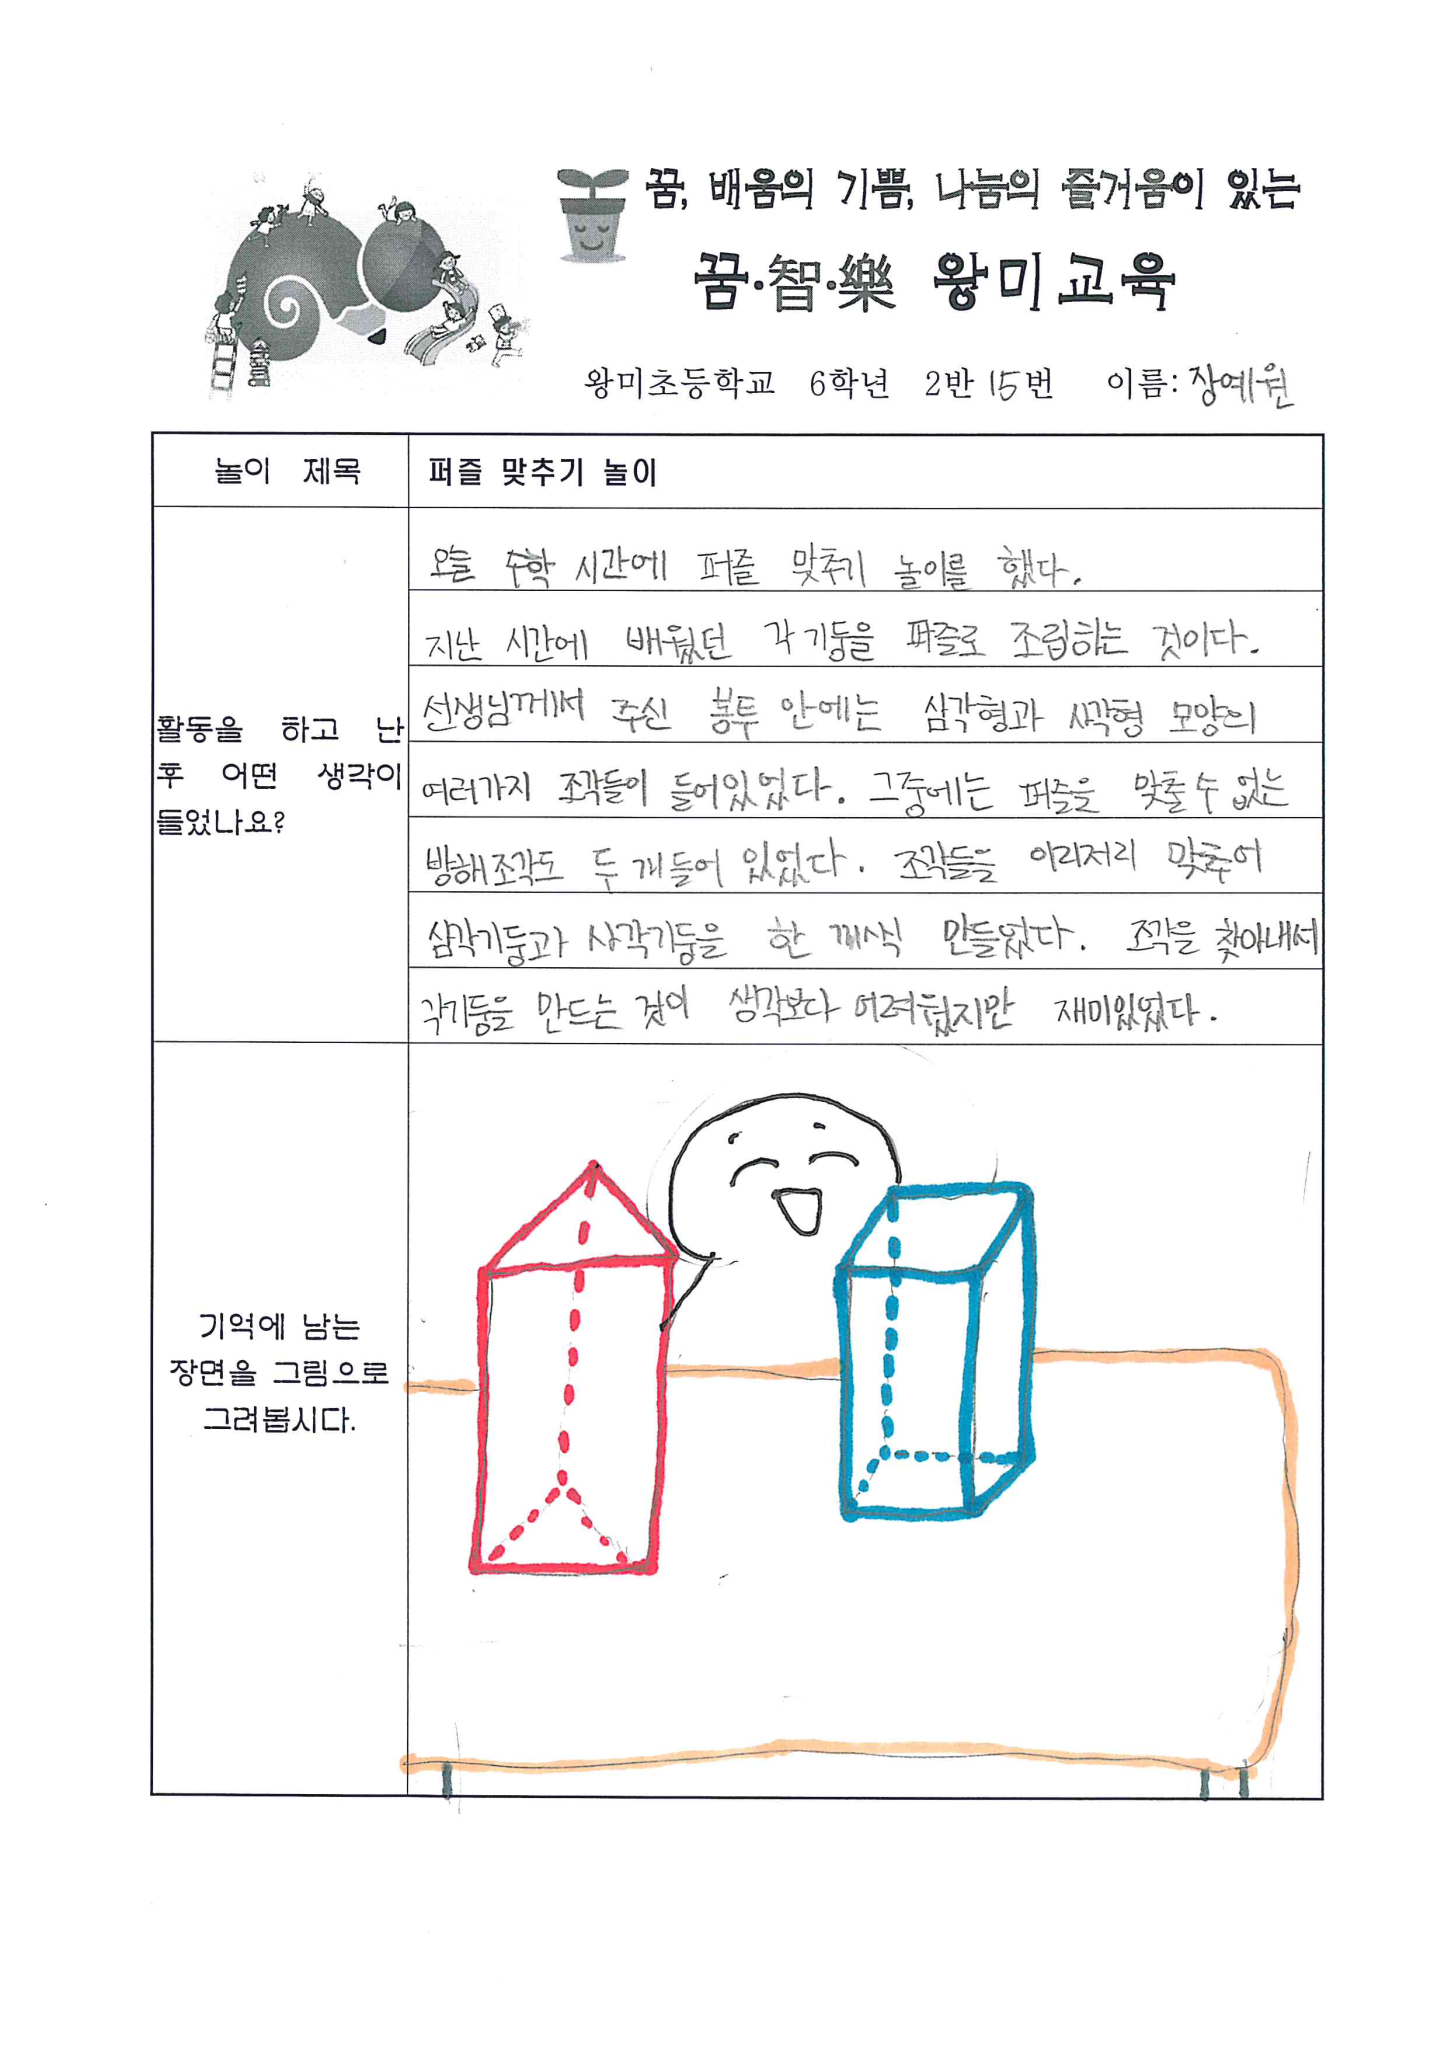 꿈, 배움의 기쁨, 나눔의 즐거움이 있는
꿈·智·樂 왕미교육
왕미초등학교 6학년 2반 15번 이름: 장예원
놀이 제목
퍼즐 맞추기 놀이
활동을 하고 난
후 어떤 생각이
들었나요?
오늘 수학 시간에 퍼즐 맞추기 놀이를 했다.
지난 시간에 배웠던 각기둥을 퍼즐로 조립하는 것이다.
선생님께서 주신 봉투 안에는 삼각형과 사각형 모양의
여러가지 조각들이 들어있었다. 그중에는 퍼즐을 맞출 수 없는
방해조각도 두 개 들어 있었다. 조각들을 이리저리 맞추어
삼각기둥과 사각기둥을 한 개씩 만들었다. 조각을 찾아내서
각기둥을 만드는 것이 생각보다 어려웠지만 재미있었다.
기억에 남는
장면을 그림으로
그려봅시다.